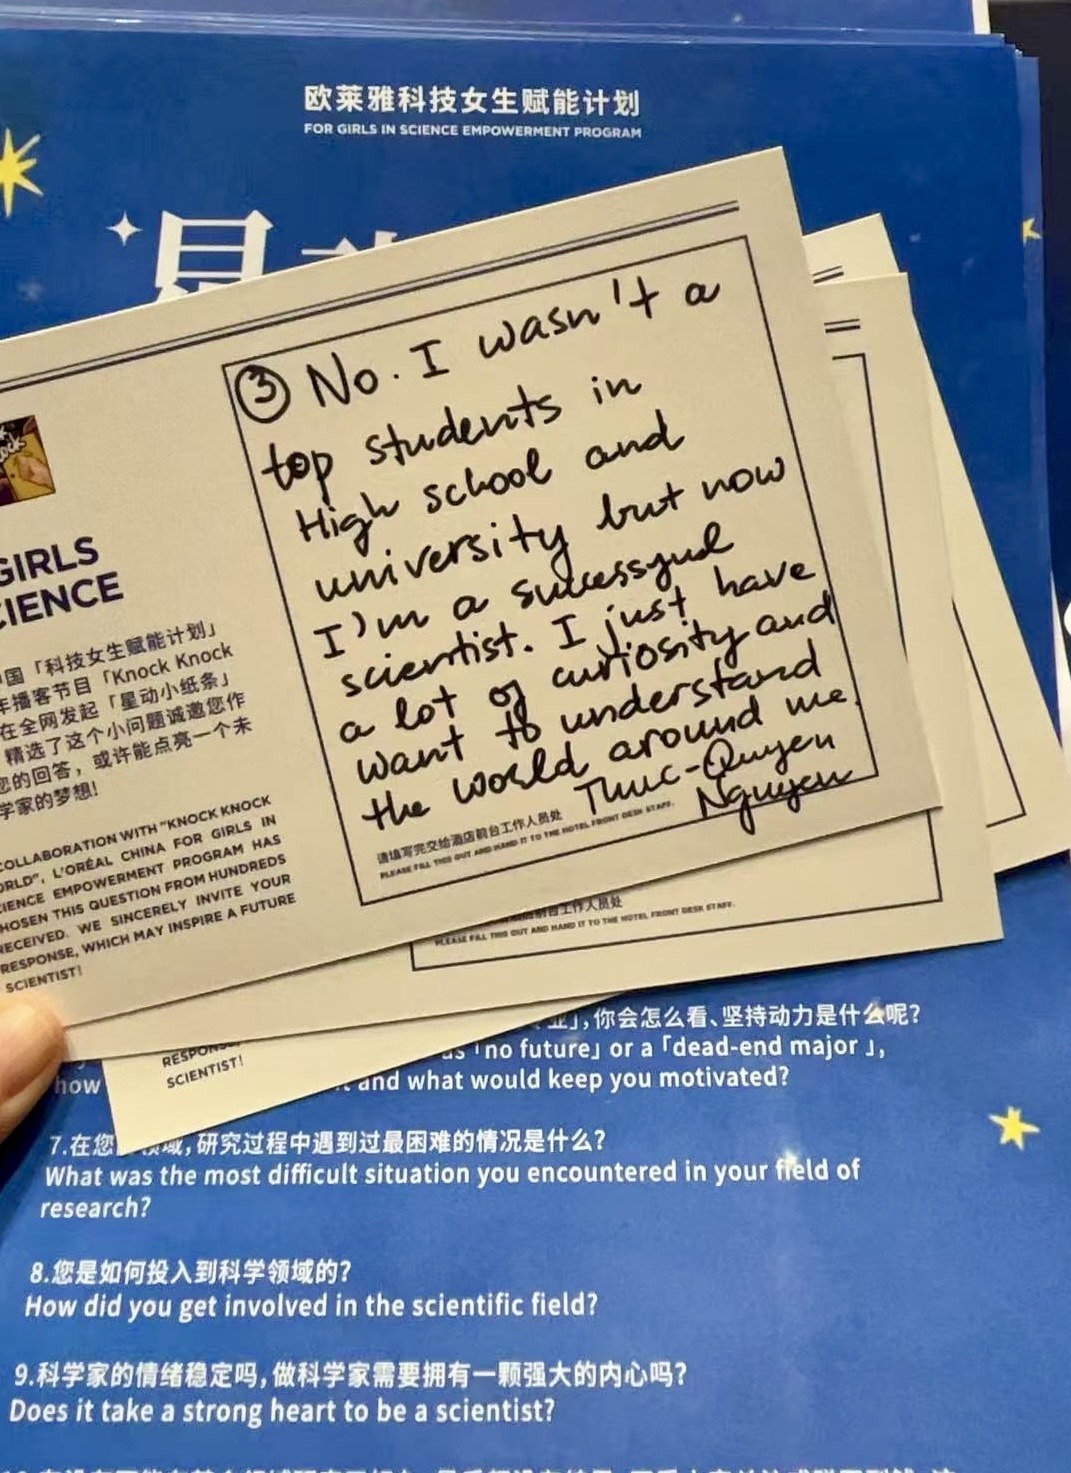 欧莱雅科技女生赋能计划
FOR GIRLS IN SCIENCE EMPOWERMENT PROGRAM
③ No. I wasn't a
top students in
High school and
university but now
I'm a successful
scientist. I just have
a lot of curiosity and
want to understand
the world around me.
Thuc-Quyen
Nguyen
请填写完交给酒店前台工作人员处
PLEASE FILL THIS OUT AND HAND IT TO THE HOTEL FRONT DESK STAFF.
GIRLS
CIENCE
国「科技女生赋能计划」
年播客节目「Knock Knock
在全网发起「星动小纸条」
精选了这个小问题诚邀您作
您的回答，或许能点亮一个未
学家的梦想!
COLLABORATION WITH "KNOCK KNOCK
ORLD", L'ORÉAL CHINA FOR GIRLS IN
IENCE EMPOWERMENT PROGRAM HAS
HOSEN THIS QUESTION FROM HUNDREDS
RECEIVED. WE SINCERELY INVITE YOUR
RESPONSE, WHICH MAY INSPIRE A FUTURE
SCIENTIST!
工作人员处
PLEASE FILL THIS OUT AND HAND IT TO THE HOTEL FRONT DESK STAFF.
RESPONSE
SCIENTIST!
业」,你会怎么看、坚持动力是什么呢?
as「no future」or a「dead-end major」,
how and what would keep you motivated?
7.在您 领域,研究过程中遇到过最困难的情况是什么?
What was the most difficult situation you encountered in your field of
research?
8.您是如何投入到科学领域的?
How did you get involved in the scientific field?
9.科学家的情绪稳定吗,做科学家需要拥有一颗强大的内心吗?
Does it take a strong heart to be a scientist?